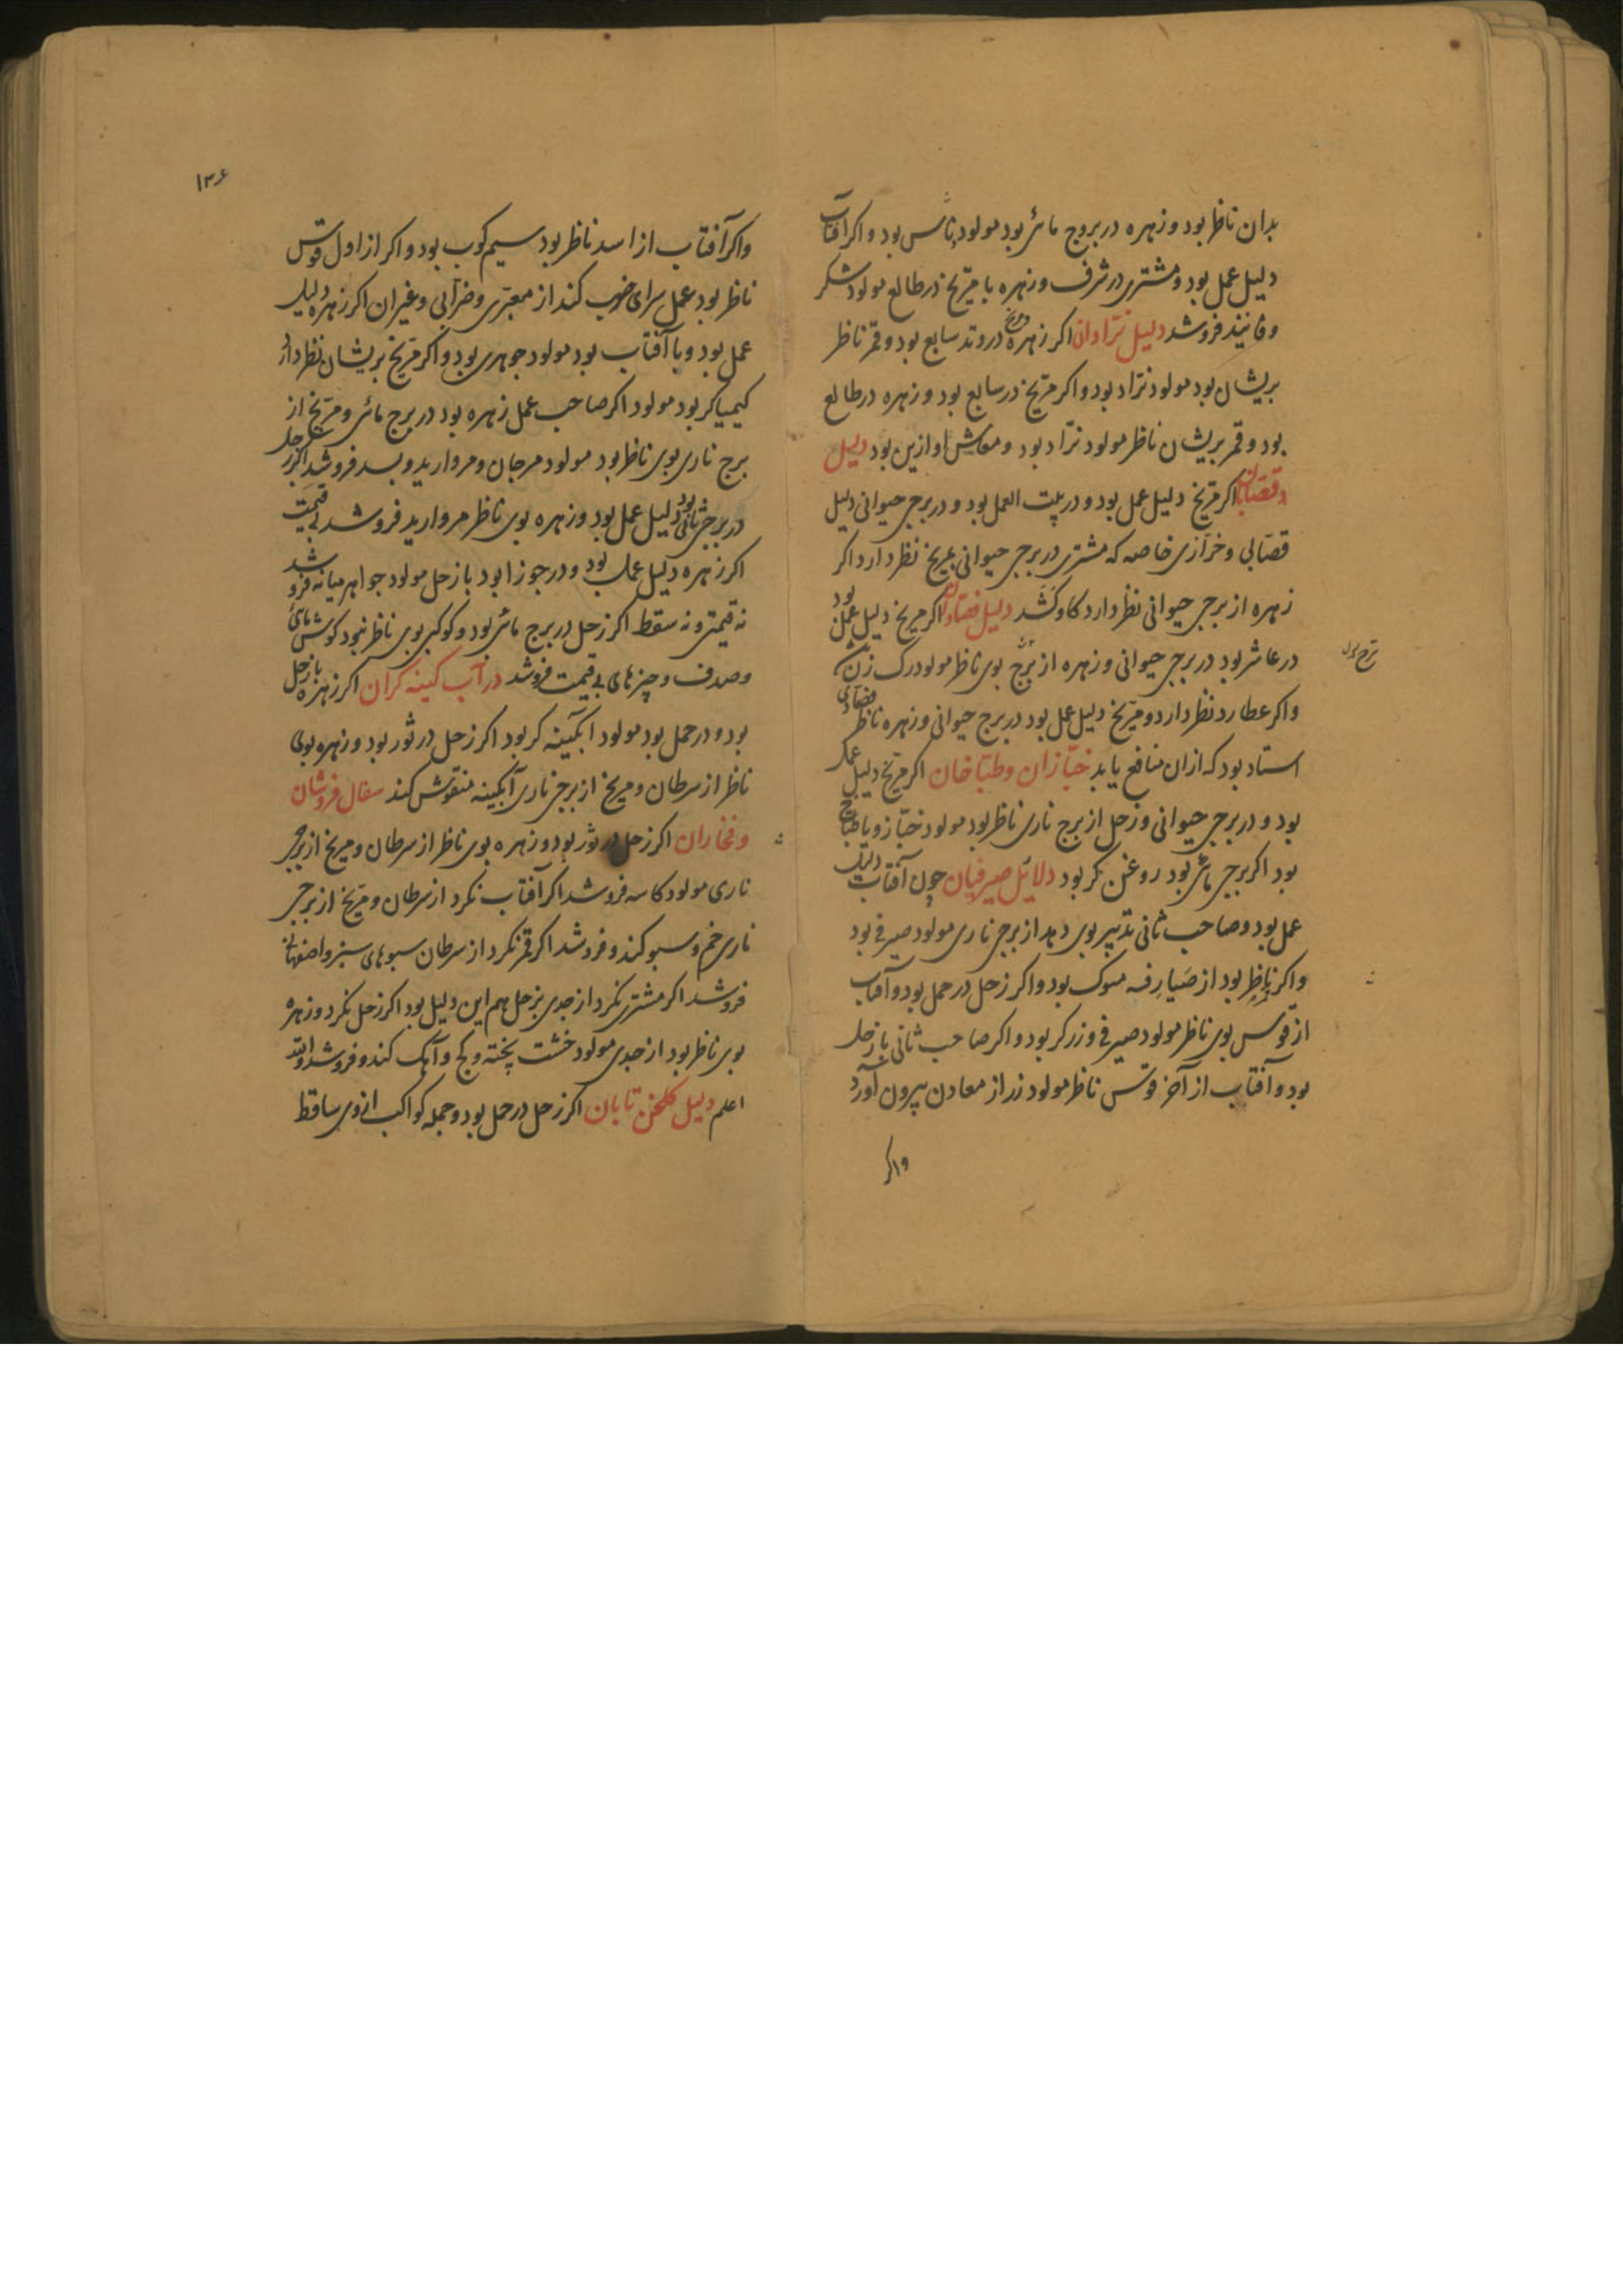 بدان ناظر بود و زهره در بروج مائی بود مولود بود و اکر آفتاب
دلیل عمل بود و مشتری در شرف و زهره با مریخ در طالع مولود شکر
و فانیذ فروشد دلیل نرّادان اکر زهره و مریخ در وتد سابع بود و قمر ناظر
بریشان بود مولود نرّاد بود و اکر مریخ در سابع بود و زهره در طالع
بود و قمر بریشان ناظر مولود نرّاد بود و معاش او ازین بود دلیل
قصّابان اکر مریخ دلیل عمل بود و در بیت العمل بود و در برجی حیوانی دلیل
قصّابی و خرّازی خاصه که مشتری در برجی حیوانی بمریخ نظر دارد اکر
زهره از برجی حیوانی نظر دارد کاوکشد دلیل فصّادان اکر مریخ دلیل عمل بود
در عاشر بود در برجی حیوانی و زهره از برج بوی ناظر مولود رک زن
و اکر عطارد نظر دارد و مریخ دلیل عمل بود در برج حیوانی و زهره ناظر فصادی
استاد بود که ازان منافع یابد خبّازان و طبّاخان اکر مریخ دلیل عمل
بود و در برجی حیوانی و زحل از برج ناری ناظر بود مولود خبّاز و یا طبّاخ
بود اکر برجی مائی بود روغن کر بود دلائل صیرفیان چون آفتاب دلیل
عمل بود و صاحب ثانی تدبیر بوی دهد از برجی ناری مولود صیرفی بود
و اکر ناظر بود از صیارفه بود و اکر زحل در حمل بود و آفتاب
از قوس بوی ناظر مولود صیرفی و زرکر بود و اکر صاحب ثانی با زحل
بود و آفتاب از آخر قوس ناظر مولود زر از معادن بیرون آورد
واکر
۱۳۶
واکر آفتاب از اسد ناظر بود سیم کوب بود و اکر از اول قوس
ناظر بود عمل سرای ضرب کند از معبری و ضرابی و غیر ان اکر زهره دلیل
عمل بود و با آفتاب بود مولود جوهری بود و اکر مریخ بریشان نظر دارد
کیمیاکر بود مولود اکر صاحب عمل زهره بود در برج مائی و مریخ از
برج ناری بوی ناظر بود مولود مرجان و مروارید و بسد فروشد اکر زحل
در برجی مائی بود دلیل عمل بود و زهره بوی ناظر مروارید فروشد بی قیمت
اکر زهره دلیل عمل بود و در جوزا بود با زحل مولود جواهر میانه فروشد
نه قیمتی و نه سقط اکر زحل در برج مائی بود و کوکبی بوی ناظر نبود کوش ماهی
و صدف و چیزهای بی قیمت فروشد در آب کینه کران اکر زهره با زحل
بود و در حمل بود مولود ابکینه کر بود اکر زحل در ثور بود و زهره بوی
ناظر از سرطان و مریخ از برجی ناری آبکینه منقوش کند سفال فروشان
و فخاران اکر زحل در ثور بود و زهره بوی ناظر از سرطان و مریخ از برجی
ناری مولود کاسه فروشد اکر آفتاب نکرد از سرطان و مریخ از برجی
ناری خم و سبو کند و فروشد اکر قمر نکرد از سرطان سبوهای سبز و
فروشد اکر مشتری نکرد از جدی بزحل هم این دلیل بود اکر زحل نکرد و زهره
بوی ناظر بود از جدی مولود خشت پخته و کچ و آهک کند و فروشد والله
اعلم دلیل کلخن تابان اکر زحل در حمل بود و جمله کواکب از وی ساقط